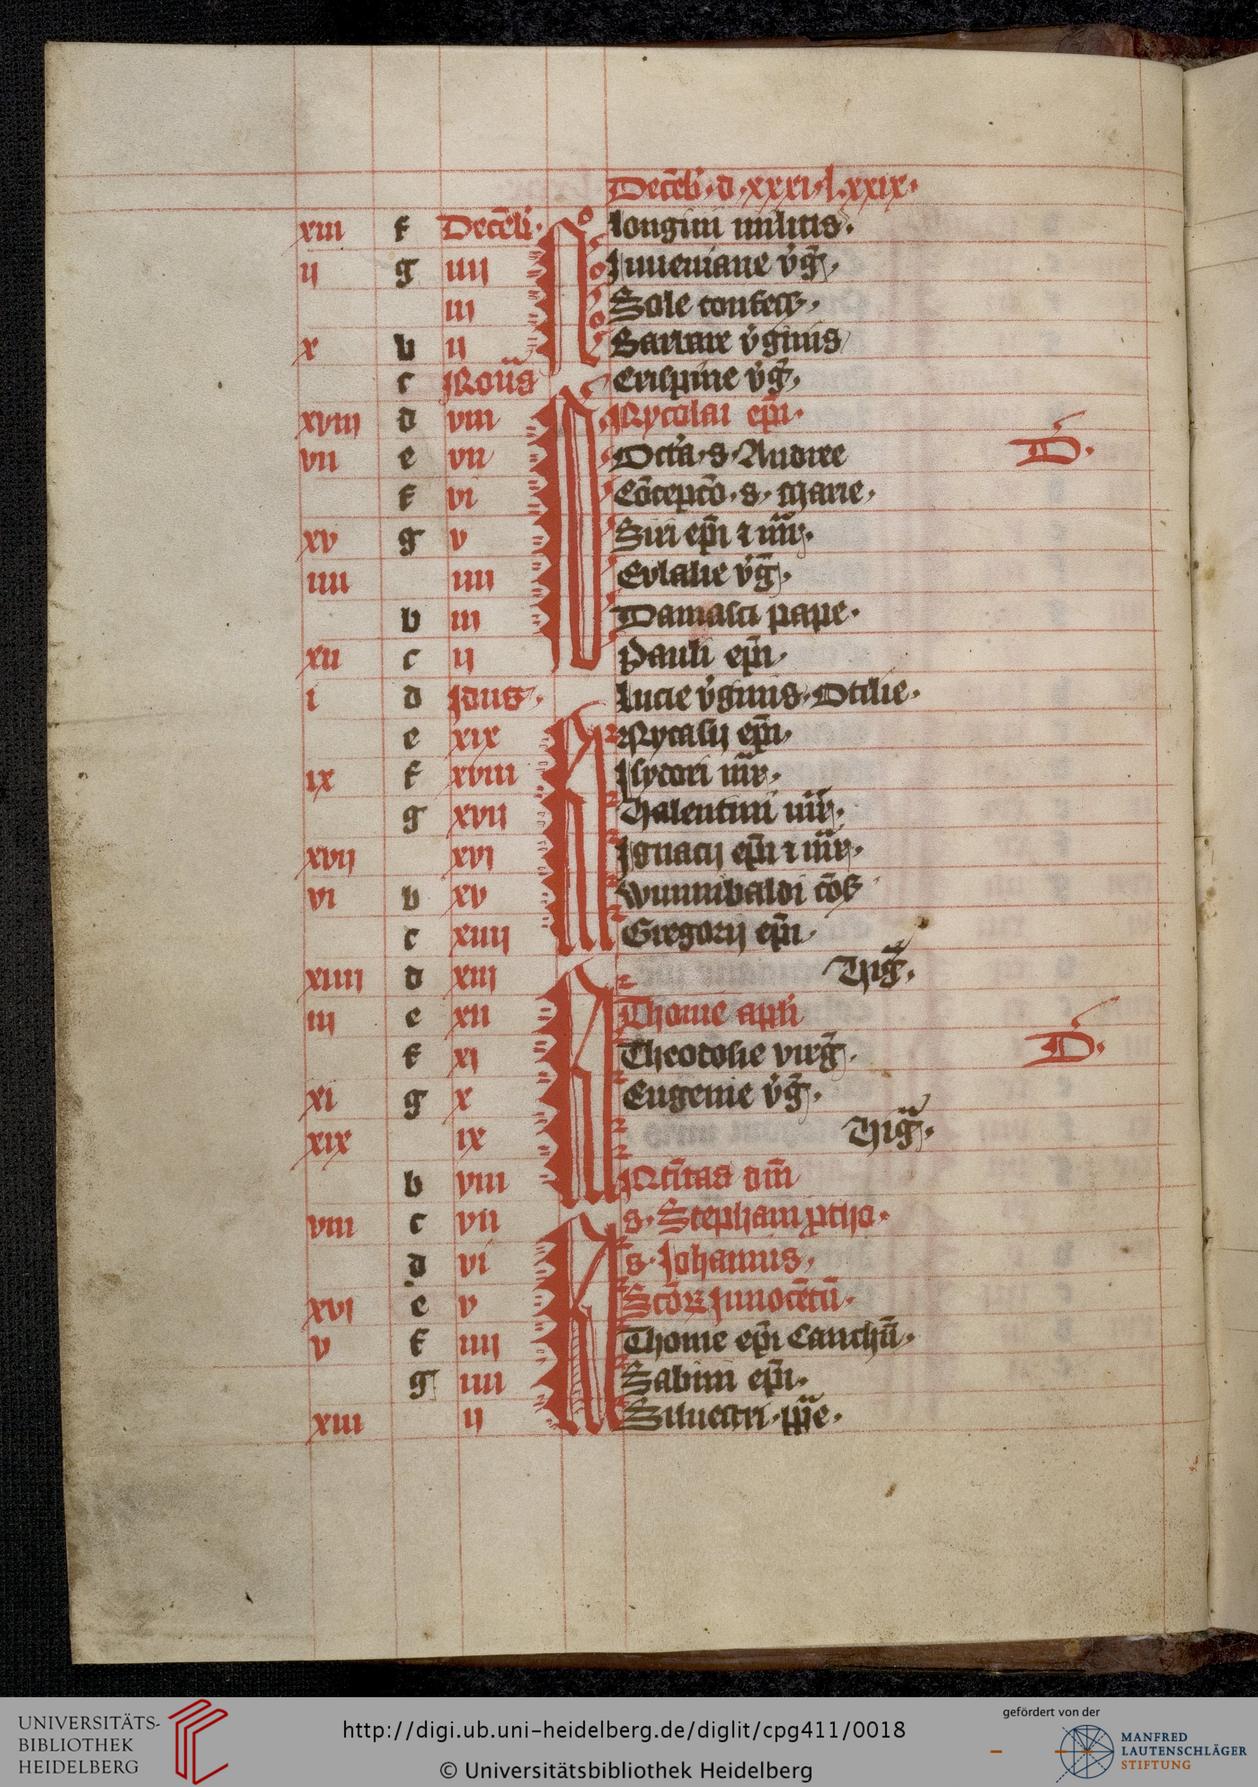 Decēb · d · xxxi · l · xxix ·
xiii f Decēb · longini militis ·
ij g iiij Juueniane v̄ḡ ·
iij Sole confess ·
x b ij Barbare v̄ginis
c Nonas Crispine v̄ḡ ·
xviij d viii Nycolai ep̄i · D ·
vii e vii Octa · s · Andree
f vi Cōcepcō · s · marie ·
xv g v Siri ep̄i ⁊ m̄r ·
iiii iiii Eulalie v̄ḡ ·
b iii Damasci pape ·
xii c ij Pauli ep̄i ·
i d Jdus · lucie v̄ginis · Otilie ·
e xix Nycasij ep̄i ·
ix f xviii Jsydori m̄r ·
g xvij Valentini m̄r ·
xvij xvi Jgnacij ep̄i ⁊ m̄r ·
vi b xv wunnibaldi cōf
c xiiij Gregorij ep̄i ·
xiiij d xiij Vig̃ ·
iij e xii Thome apl̄i D ·
f xi Theodosie virḡ ·
xi g x Eugenie v̄ḡ ·
xix ix Vig̃ ·
b viii Natītas dn̄i
viii c vii s · Stephani
d vi s · Johannis ·
xvi e v Scōꝝ Jnnocētū ·
v f iiij Thome ep̄i
g iiii Sabini ep̄i ·
xiii ij Siluestri · pp̄e ·
UNIVERSITÄTS-
BIBLIOTHEK
HEIDELBERG
http://digi.ub.uni-heidelberg.de/diglit/cpg411/0018
© Universitätsbibliothek Heidelberg
gefördert von der
MANFRED
LAUTENSCHLÄGER
STIFTUNG